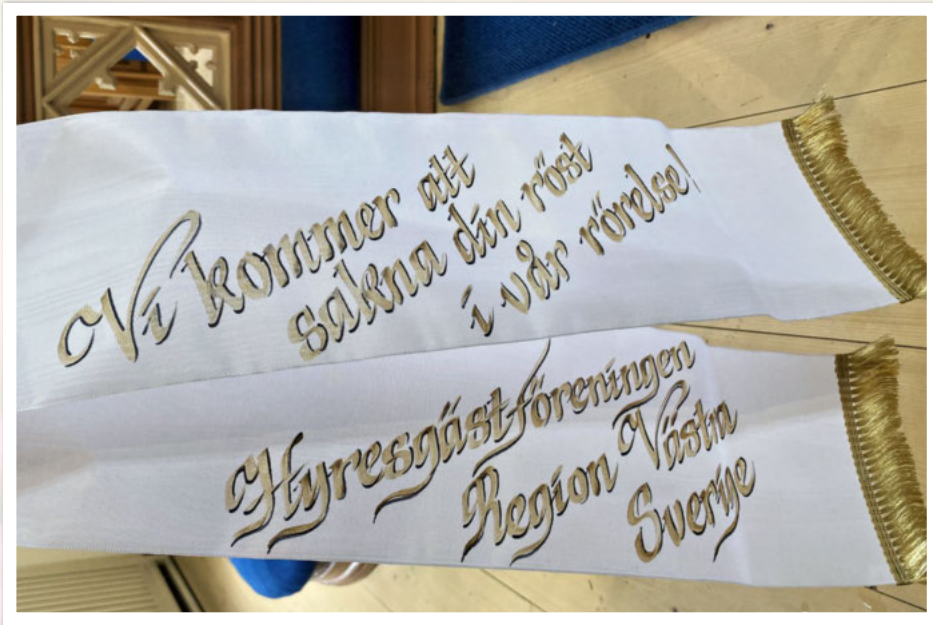 Vi kommer att
sakna din röst
i vår rörelse!
Hyresgästföreningen
Region Västra
Sverige